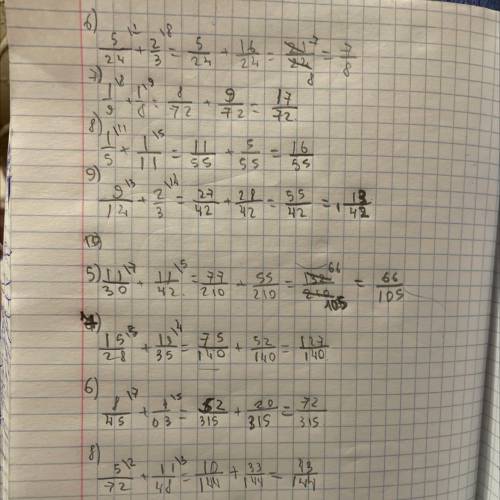 6)
5/24 \1 + 2/3 \8 = 5/24 + 16/24 = 21/24 7/8 = 7/8
7)
1/9 \8 + 1/8 \9 = 8/72 + 9/72 = 17/72
8)
1/5 \11 + 1/11 \5 = 11/55 + 5/55 = 16/55
9)
9/14 \3 + 2/3 \14 = 27/42 + 28/42 = 55/42 = 1 13/42
10)
5) 11/30 \7 + 11/42 \5 = 77/210 + 55/210 = 132/210 66/105 = 66/105
15/28 \5 + 13/35 \4 = 75/140 + 52/140 = 127/140
6)
8/45 \7 + 4/63 \5 = 52/315 + 20/315 = 72/315
8)
5/72 \2 + 11/48 \3 = 10/144 + 33/144 = 43/144